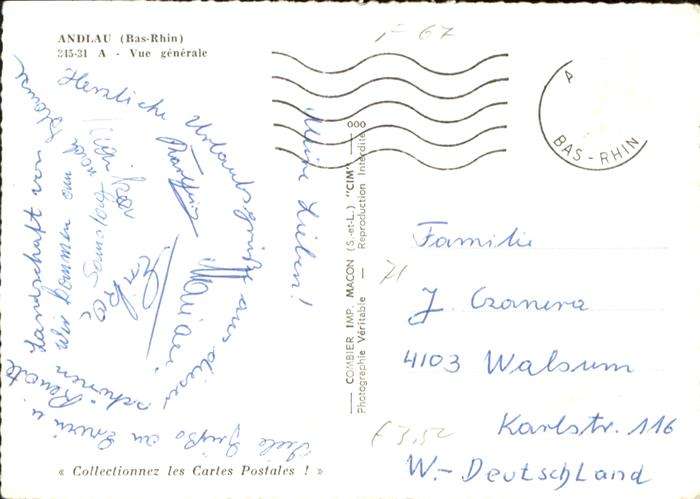 ANDLAU (Bas-Rhin)
245-31 A - Vue générale
F 67
A
BAS-RHIN
Meine Lieben!
Herzliche Urlaubsgrüße aus dieser schönen
Landschaft von
Wir kommen am
Samstag nach
Viele Grüße an Erwin u. Renate
000
COMBIER IMP. MACON (S.-et-L.) "CIM"
Photographie Véritable — Reproduction Interdite
Familie
J. Czanera
4103 Walsum
Karlstr. 116
W.-Deutschland
71
€ 3,50
« Collectionnez les Cartes Postales ! »